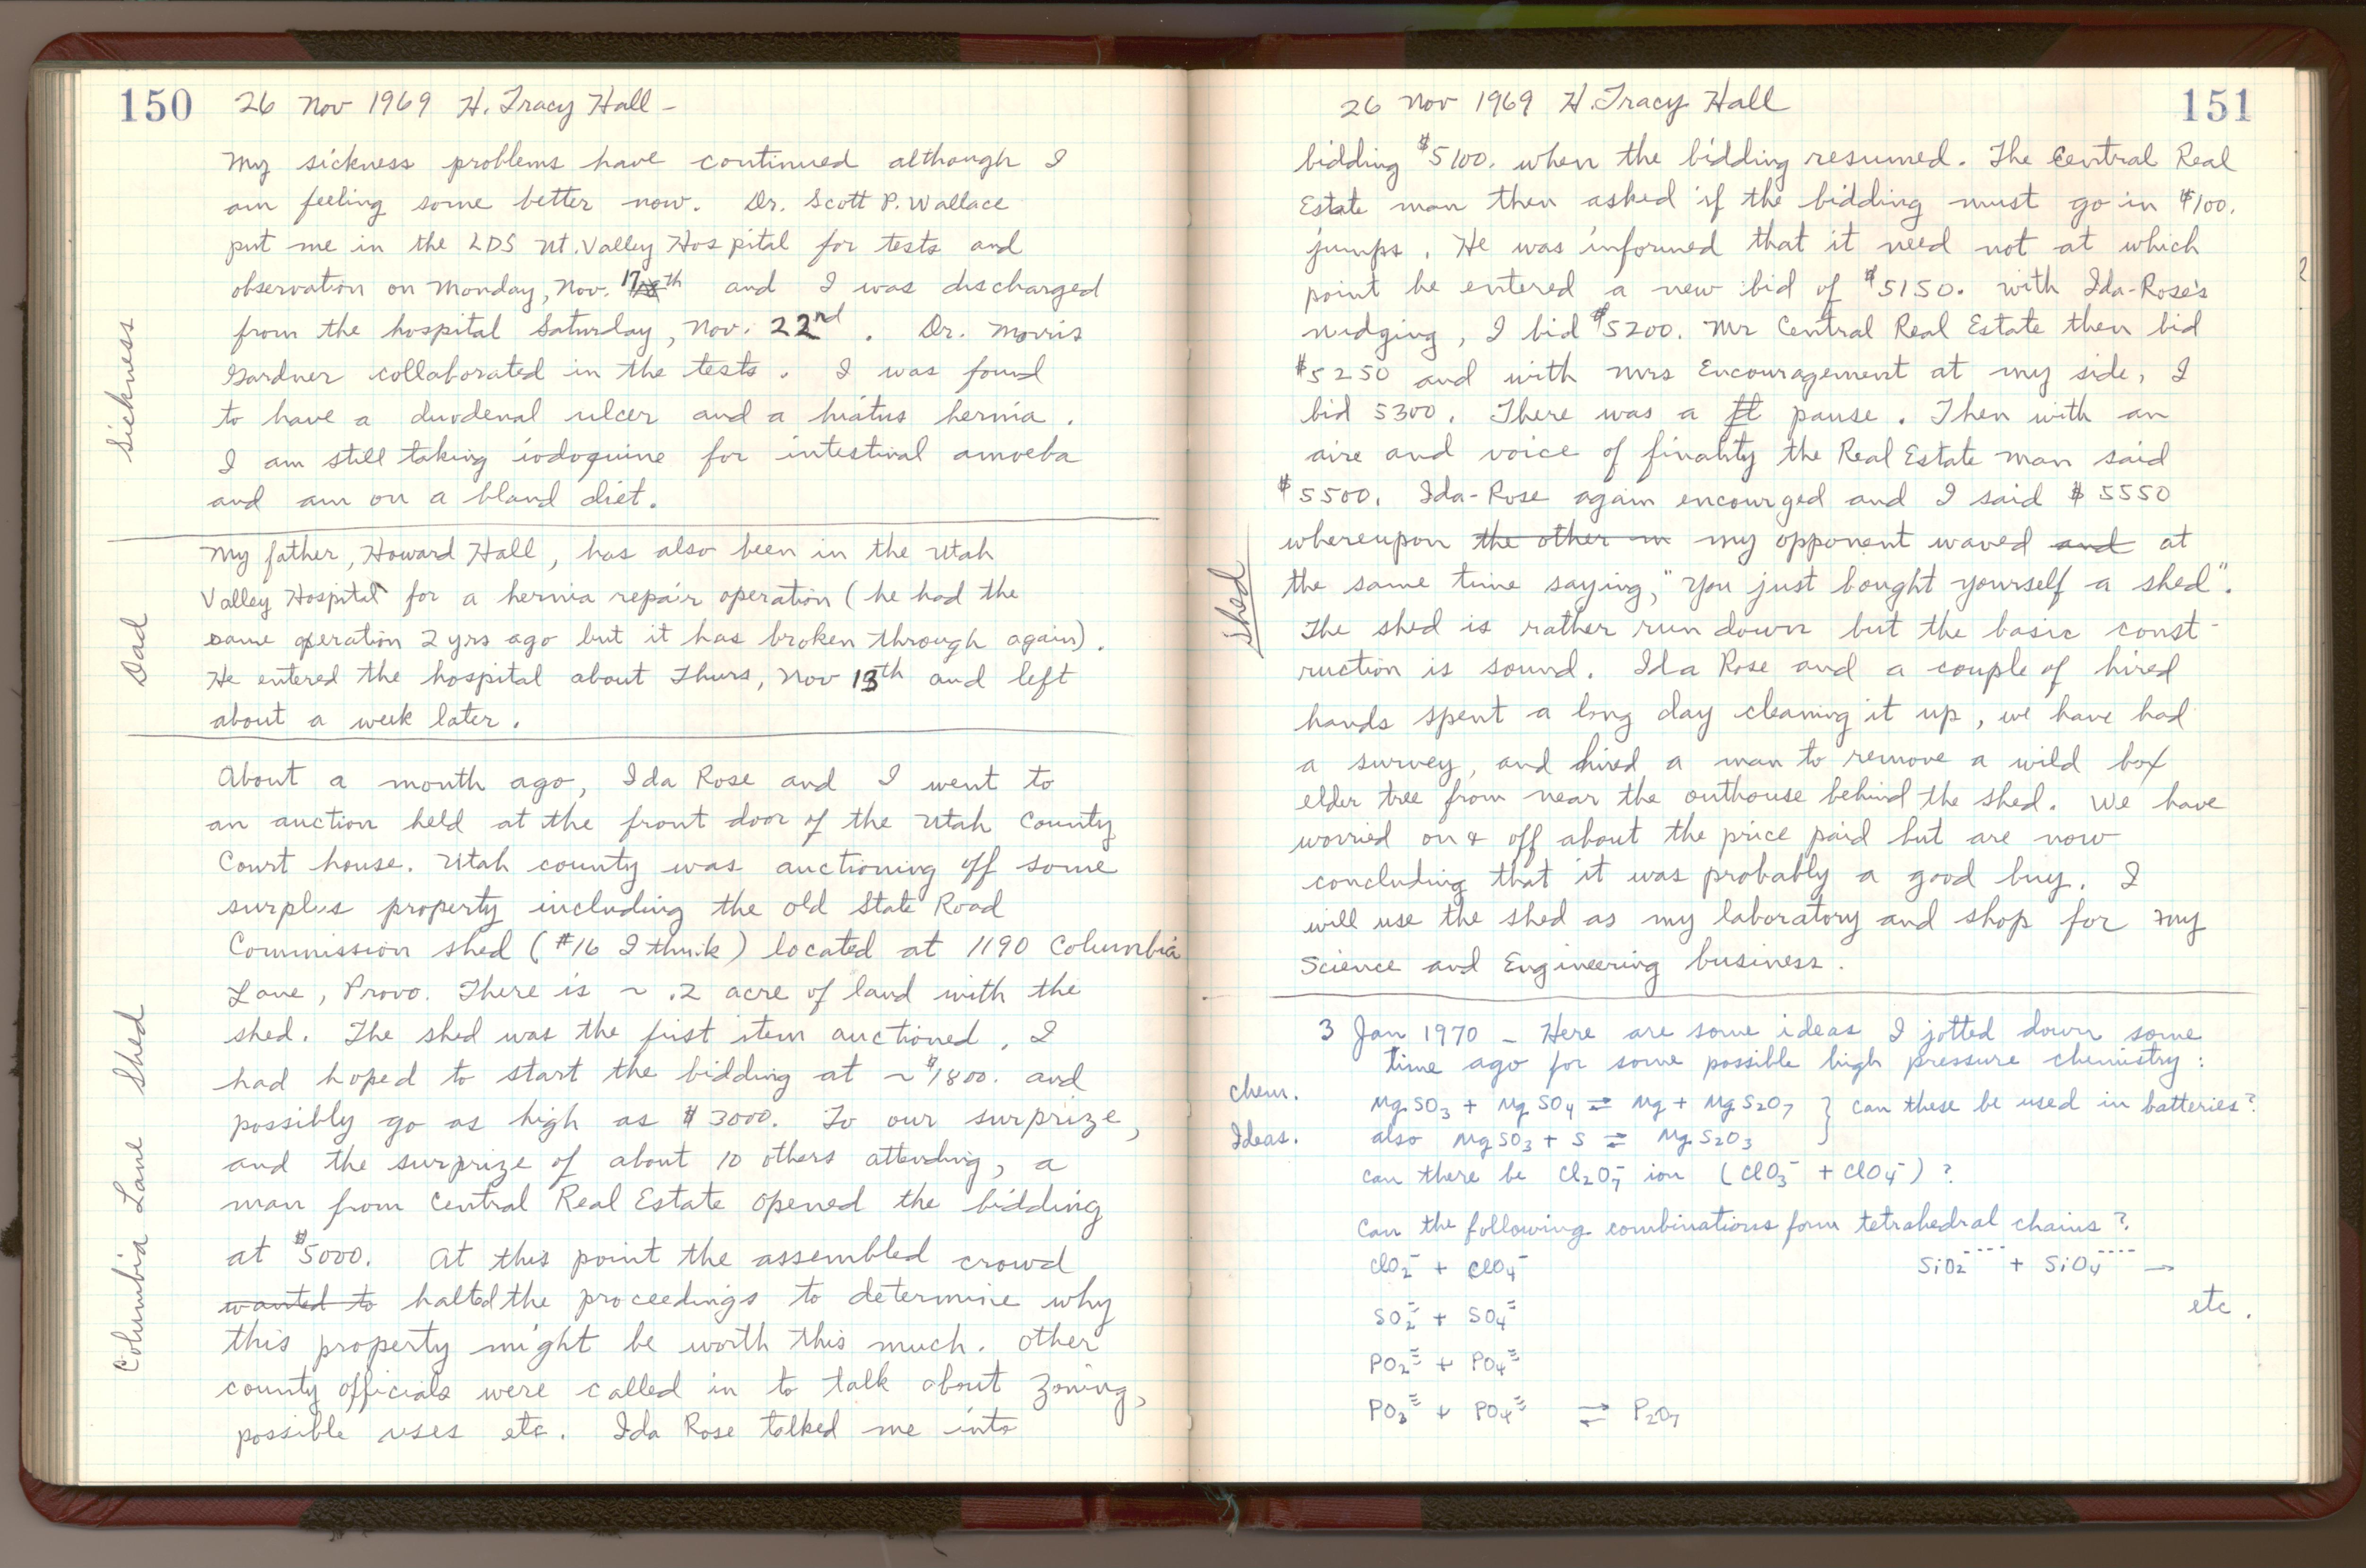 150 26 Nov 1969 H. Tracy Hall -
My sickness problems have continued although I
am feeling some better now. Dr. Scott P. Wallace
put me in the LDS Ut. Valley Hospital for tests and
observation on Monday, Nov. 17th and I was discharged
from the hospital Saturday, Nov. 22nd. Dr. Morris
Gardner collaborated in the tests. I was found
to have a duodenal ulcer and a hiatus hernia.
I am still taking iodoquine for intestinal amoeba
and am on a bland diet.
Sickness
My father, Howard Hall, has also been in the Utah
Valley Hospital for a hernia repair operation (he had the
same operation 2 yrs ago but it has broken through again).
He entered the hospital about Thurs, Nov 13th and left
about a week later.
Dad
About a month ago, Ida Rose and I went to
an auction held at the front door of the Utah County
Court house. Utah county was auctioning off some
surplus property including the old State Road
Commission shed (#16 I think) located at 1190 Columbia
Lane, Provo. There is ~ .2 acre of land with the
shed. The shed was the first item auctioned. I
had hoped to start the bidding at ~ $1800. and
possibly go as high as $3000. To our surprize,
and the surprize of about 10 others attending, a
man from Central Real Estate opened the bidding
at $5000. At this point the assembled crowd
wanted to halted the proceedings to determine why
this property might be worth this much. Other
county officials were called in to talk about zoning,
possible uses etc. Ida Rose talked me into
Columbia Lane Shed
26 Nov 1969 H. Tracy Hall 151
bidding $5100. when the bidding resumed. The Central Real
Estate man then asked if the bidding must go in $100.
jumps. He was informed that it need not at which
point he entered a new bid of $5150. with Ida-Rose's
nudging, I bid $5200. Mr Central Real Estate then bid
$5250 and with Mrs Encouragement at my side, I
bid 5300. There was a pause. Then with an
aire and voice of finality the Real Estate man said
$5500. Ida-Rose again encourged and I said $5550
whereupon the other m my opponent waved and at
the same time saying, "You just bought yourself a shed".
The shed is rather run down but the basic const-
ruction is sound. Ida Rose and a couple of hired
hands spent a long day cleaning it up, we have had
a survey, and hired a man to remove a wild box
elder tree from near the outhouse behind the shed. We have
worried on & off about the price paid but are now
concluding that it was probably a good buy. I
will use the shed as my laboratory and shop for my
Science and Engineering business.
Shed
3 Jan 1970 - Here are some ideas I jotted down some
time ago for some possible high pressure chemistry:
Chem. MgSO3 + MgSO4 ⇌ Mg + MgS2O7 } can these be used in batteries?
Ideas. also MgSO3 + S ⇌ MgS2O3
Can there be Cl2O7- ion (ClO3- + ClO4-)?
Can the following combinations form tetrahedral chains?
ClO2- + ClO4- SiO2---- + SiO4---- →
SO2= + SO4= etc.
PO2≡ + PO4≡
PO3≡ + PO4≡ ⇌ P2O7